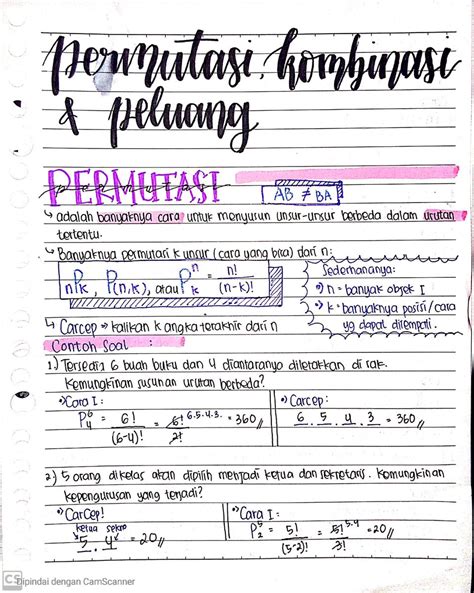 permutasi, kombinasi
& peluang
PERMUTASI
AB ≠ BA
↳ adalah banyaknya cara untuk menyusun unsur-unsur berbeda dalam urutan
tertentu.
↳ Banyaknya permutasi k unsur (cara yang bisa) dari n:
nPk, P(n,k), atau P^n_k = n!/(n-k)!
Sederhananya:
•) n = banyak objek I
•) k = banyaknya posisi/cara
yg dapat ditempati.
↳ Carcep ⇒ kalikan k angka terakhir dari n
Contoh Soal :
1.) Tersedia 6 buah buku dan 4 diantaranya diletakkan di rak.
Kemungkinan susunan urutan berbeda?
•) Cara I:
P^6_4 = 6!/(6-4)! = 6! 6.5.4.3./2! = 360//
•) Carcep:
6 . 5 . 4 . 3 = 360//
2.) 5 orang dikelas akan dipilih menjadi ketua dan sekretaris. Kemungkinan
kepengurusan yang terjadi?
•) CarCep!
ketua sekre
5 . 4 = 20//
•) Cara I:
P^5_2 = 5!/(5-2)! = 5! 5.4/3! = 20//
CS Dipindai dengan CamScanner